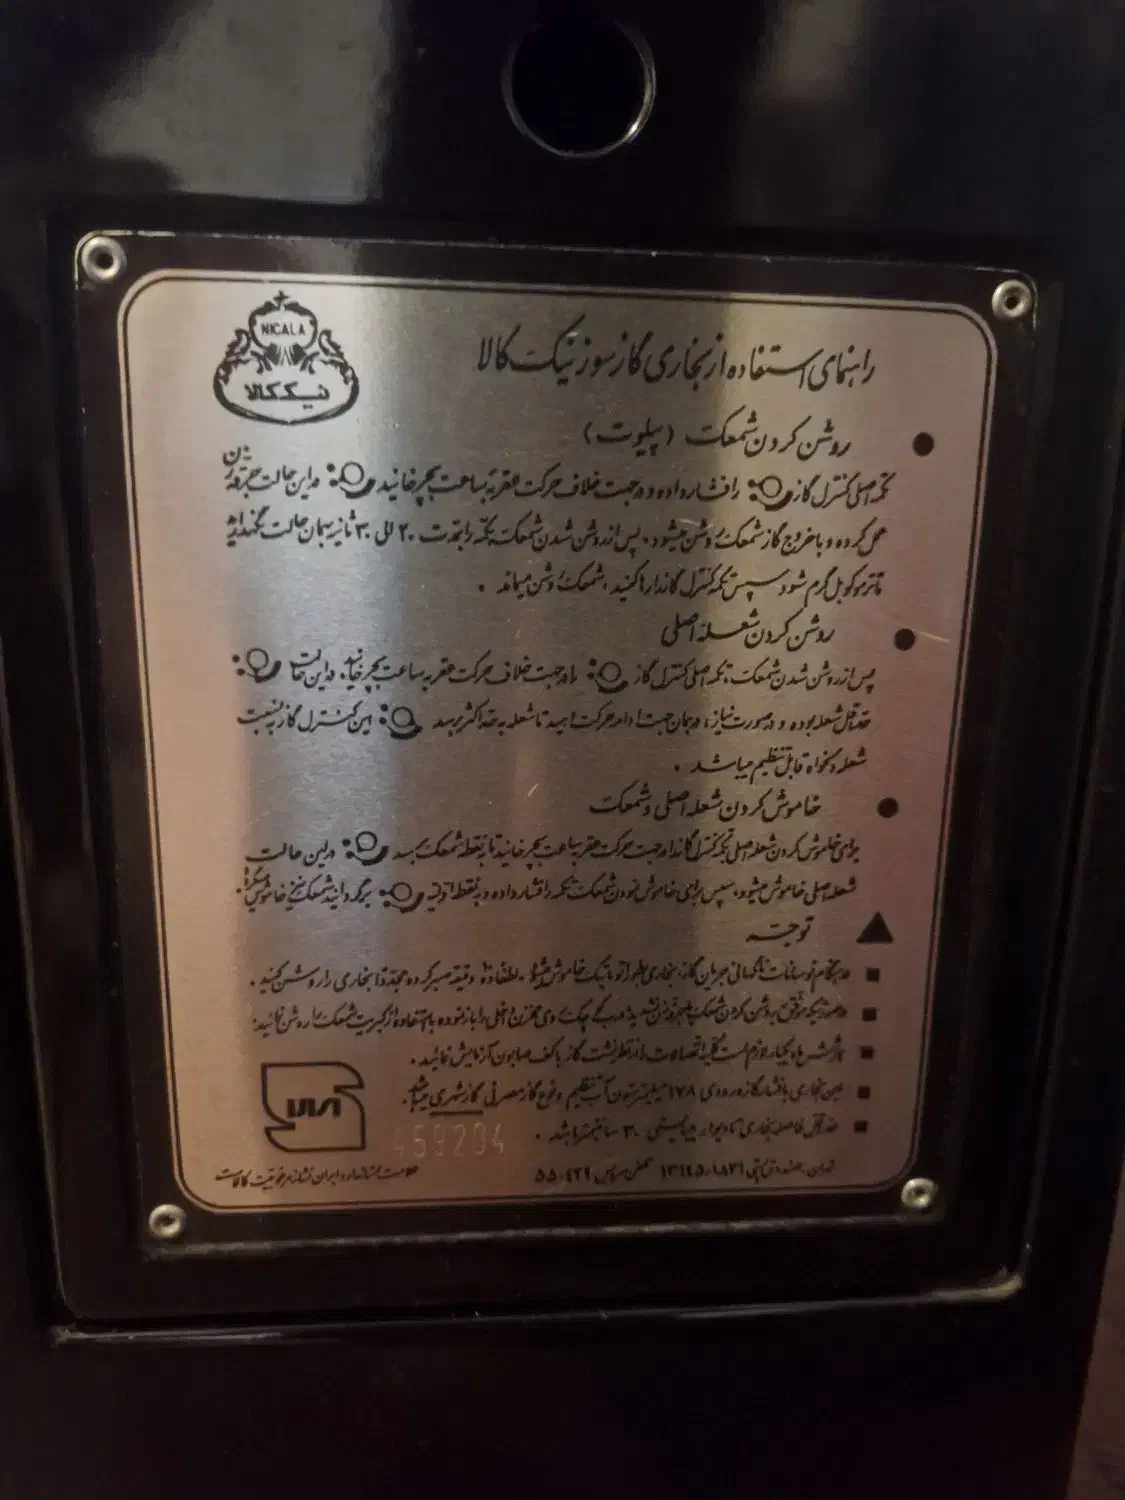 NICALA
نیک کالا
راهنمای استفاده از بخاری گازسوز نیک کالا
روشن کردن شمعک (پیلوت)
تکمه اصلی کنترل گاز را فشار داده و در جهت خلاف حرکت عقربه ساعت بچرخانید در این حالت جرقه زن
عمل کرده و با خروج گاز شمعک روشن میشود، پس از روشن شدن شمعک تکمه را بمدت ۲۰ الی ۳۰ ثانیه بهمان حالت نگهدارید
تا ترموکوپل گرم شود سپس تکمه کنترل گاز را رها کنید، شمعک روشن میماند.
روشن کردن شعله اصلی
پس از روشن شدن شمعک، تکمه اصلی کنترل گاز را در جهت خلاف حرکت عقربه ساعت بچرخانید، در این حالت
حداقل شعله بوده و در صورت نیاز، در همان جهت ادامه حرکت دهید تا شعله به حداکثر برسد این کنترل گاز به نسبت
شعله دلخواه قابل تنظیم میباشد.
خاموش کردن شعله اصلی و شمعک
برای خاموش کردن شعله اصلی تکمه کنترل گاز را در جهت حرکت عقربه ساعت بچرخانید تا به نقطه شمعک برسد در این حالت
شعله اصلی خاموش میشود، سپس برای خاموش نمودن شمعک تکمه را فشار داده و به نقطه اولیه برگردانید شمعک نیز خاموش میگردد.
توجه
در هنگام نوسانات ناگهانی جریان گاز، بخاری بطور اتوماتیک خاموش میشود، لطفاً دقیقه صبر کرده مجدداً بخاری را روشن کنید.
در صورتیکه موفق به روشن کردن شمعک با جرقه زن نشدید درب کوچک روی مخزن داخلی را باز نموده با استفاده از کبریت شمعک را روشن نمائید.
هر شش ماه یکبار لازم است کلیه اتصالات را از نظر نشت گاز با کف صابون آزمایش نمائید.
این بخاری با فشار گاز ورودی ۱۷۸ میلیمتر ستون آب تنظیم و نوع گاز مصرفی گاز شهری میباشد.
حداقل فاصله بخاری تا دیوار میبایستی ۳۰ سانتیمتر باشد.
459204
تهران، صندوق پستی ۱۸۳۱-۱۳۱۴۵ تلفن سرویس ۵۵۰۴۲۹
علامت استاندارد ایران نشانه مرغوبیت کالاست